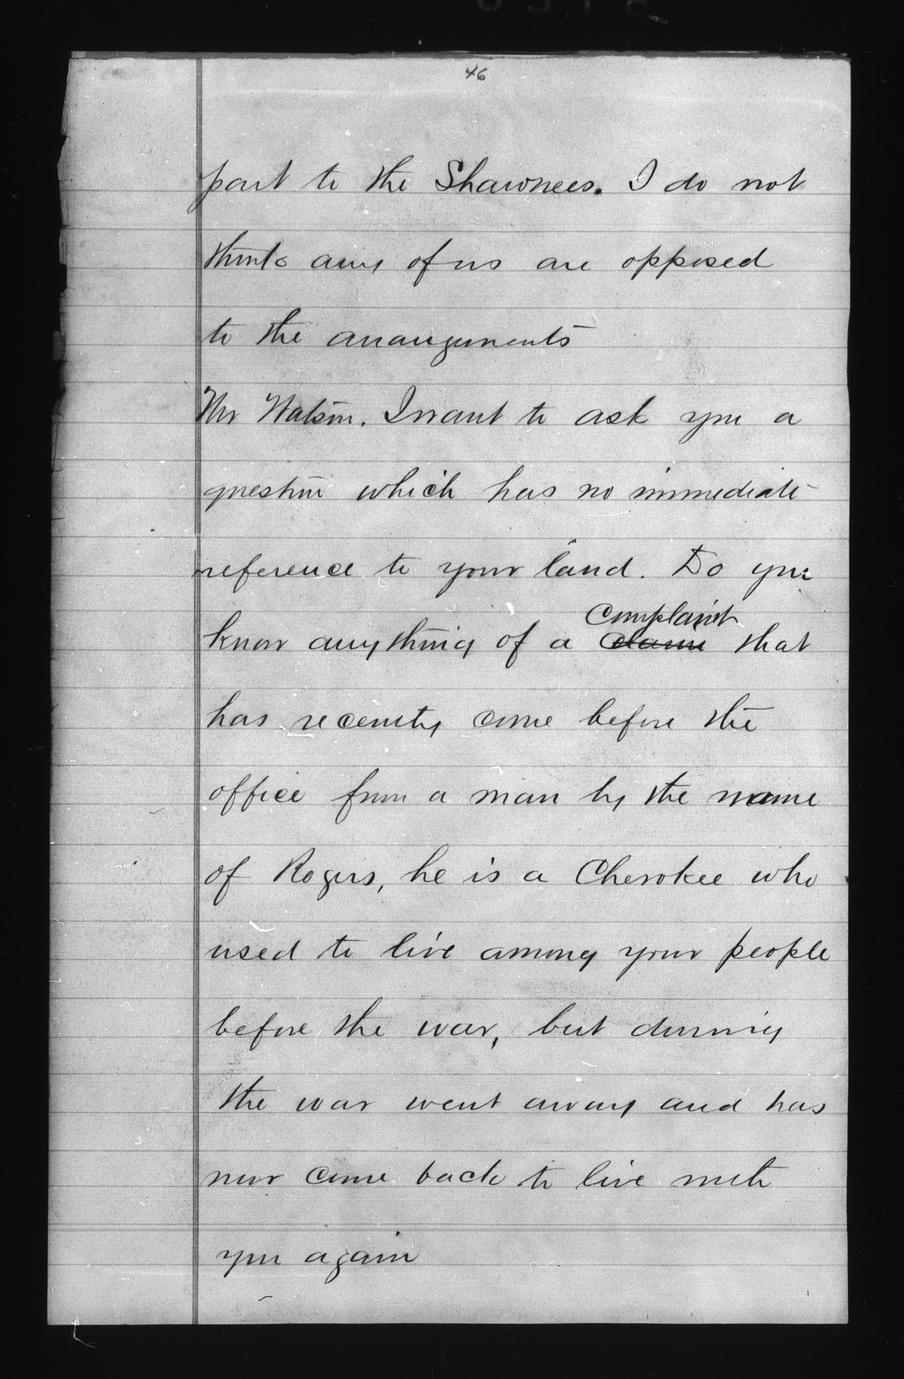 46
part to the Shawnees. I do not
think any of us are opposed
to the arrangements
Mr Watson. I want to ask you a
question which has no immediate
reference to your land. Do you
complaint
know anything of a claim that
has recently come before the
office from a man by the name
of Rogers, he is a Cherokee who
used to live among your people
before the war, but during
the war went away and has
now come back to live with
you again